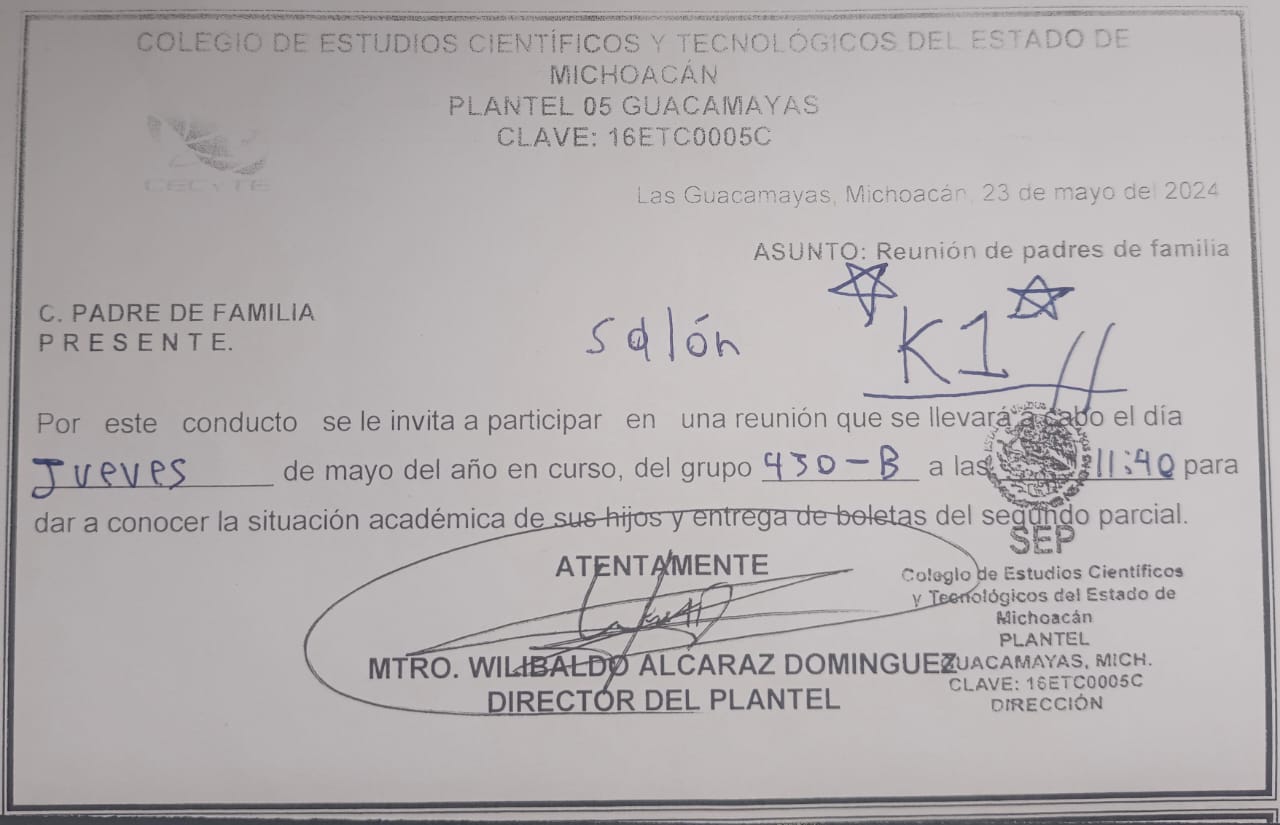 COLEGIO DE ESTUDIOS CIENTÍFICOS Y TECNOLÓGICOS DEL ESTADO DE
MICHOACÁN
PLANTEL 05 GUACAMAYAS
CLAVE: 16ETC0005C
CECYTE
Las Guacamayas, Michoacán, 23 de mayo del 2024
ASUNTO: Reunión de padres de familia
C. PADRE DE FAMILIA
P R E S E N T E.
Salón K1
Por este conducto se le invita a participar en una reunión que se llevará a cabo el día
Jueves de mayo del año en curso, del grupo 430-B a las 11:40 para
dar a conocer la situación académica de sus hijos y entrega de boletas del segundo parcial.
ATENTAMENTE
MTRO. WILIBALDO ALCARAZ DOMINGUEZ
DIRECTOR DEL PLANTEL
SEP
Colegio de Estudios Científicos
y Tecnológicos del Estado de
Michoacán
PLANTEL
GUACAMAYAS, MICH.
CLAVE: 16ETC0005C
DIRECCIÓN